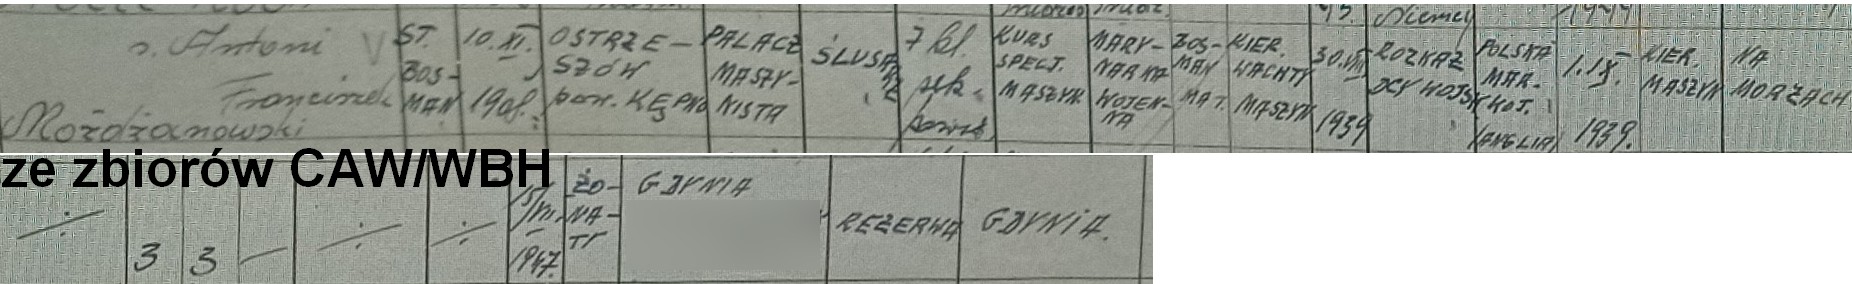 Niemcy
s. Antoni
Franciszek
Możdżanowski
ST.
BOS-
MAN
10.XI.
1908.
OSTRZE-
SZÓW
pow. KĘPNO
PALACZ
MASZY-
NISTA
ŚLUSARZ
7 kl.
szk.
KURS
SPECJ.
MASZYN
MARY-
NARKA
WOJEN-
NA
BOS-
MAN
MAT.
KIER.
WACHTY
MASZYN
30.VIII
1939
ROZKAZ
DCY WOJSK
POLSKA
MAR.
WOJ.
(ANGLIA)
1.IX.
1939.
KIER.
MASZYN
NA
MORZACH
ze zbiorów CAW/WBH
÷
3
3
—
÷
÷
1947.
ŻO-
NA-
TY
GDYNIA
REZERWA
GDYNIA.